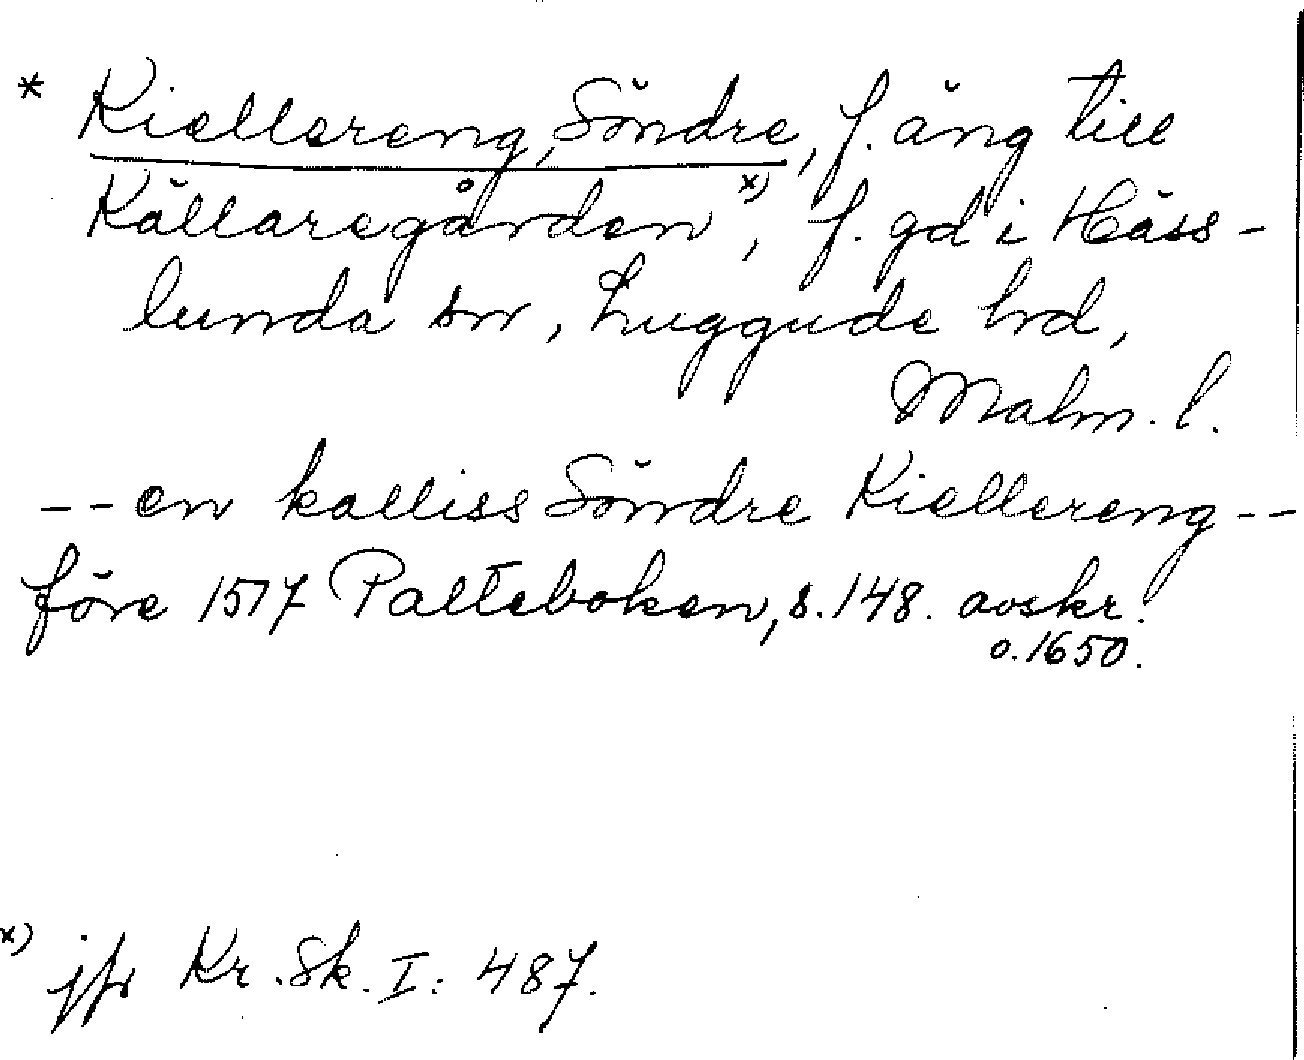 * Kiellereng, Söndre, f. äng till
Källaregården x), f. gd i Häss-
lunda sn, Luggude hd,
Malm. l.
-- en kalliss Söndre Kiellereng --
före 1517 Palteboken, s. 148. avskr.
o. 1650.
x) jfr Kr. Sk. I: 487.